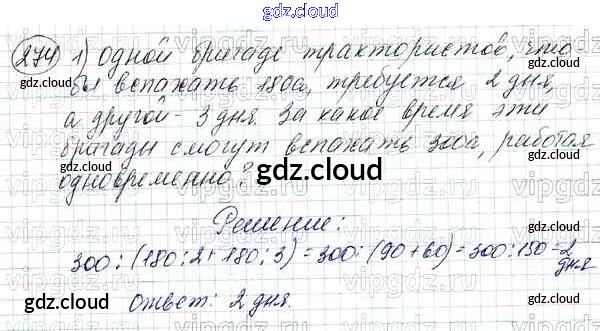 gdz.cloud
274 1) Одной бригаде трактористов, что
бы вспахать 180а, требуется 2 дня,
а другой - 3 дня. За какое время эти
бригады смогут вспахать 300а, работая
одновременно?
Решение:
300:(180:2+180:3)=300:(90+60)=300:150=2
дня
Ответ: 2 дня.
gdz.cloud
gdz.cloud
gdz.cloud
gdz.cloud
gdz.cloud
gdz.cloud
gdz.cloud
gdz.cloud
gdz.cloud
gdz.cloud